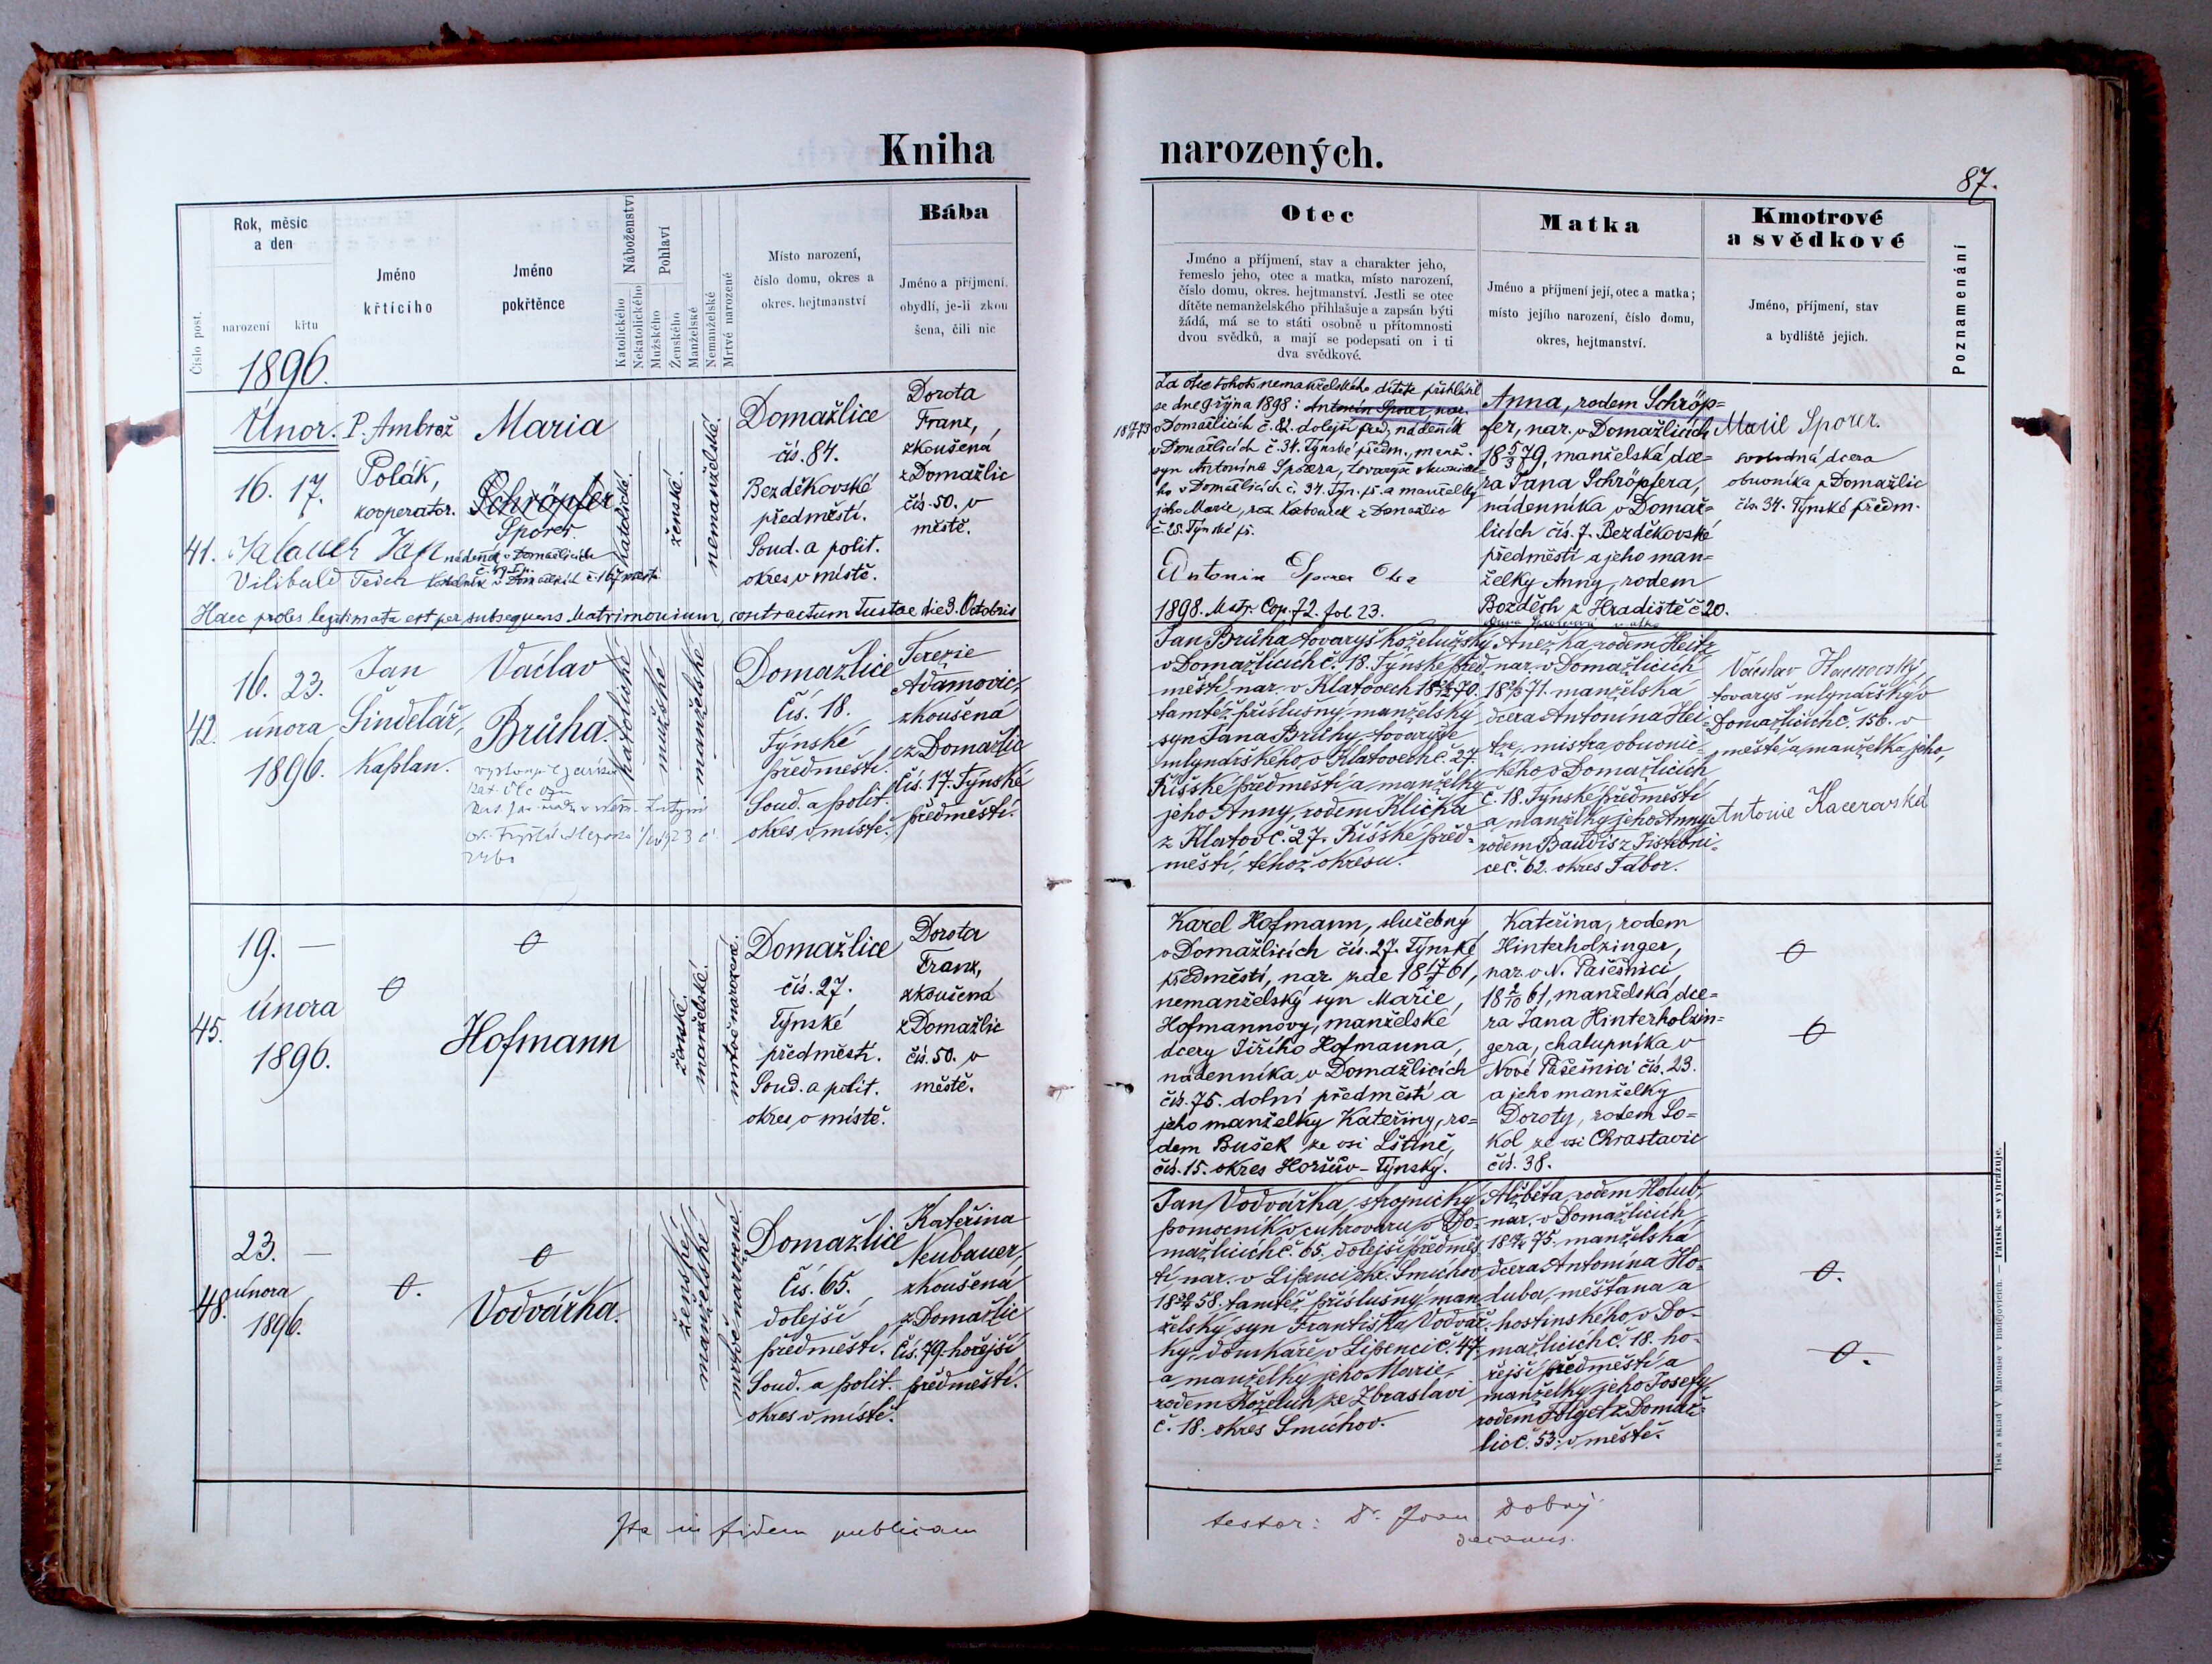 Kniha
narozených.
87.
Číslo post.
Rok, měsíc
a den
narození
křtu
Jméno
křtícího
Jméno
pokřtěnce
Náboženství
Katolického
Nekatolického
Pohlaví
Mužského
Ženského
Manželské
Nemanželské
Mrtvě narozené
Místo narození,
číslo domu, okres a
okres. hejtmanství
Bába
Jméno a příjmení.
obydlí, je-li zkou
šena, čili nic
Otec
Jméno a příjmení, stav a charakter jeho,
řemeslo jeho, otec a matka, místo narození,
číslo domu, okres. hejtmanství. Jestli se otec
dítěte nemanželského přihlašuje a zapsán býti
žádá, má se to státi osobně u přítomnosti
dvou svědků, a mají se podepsati on i ti
dva svědkové.
Matka
Jméno a příjmení její, otec a matka;
místo jejího narození, číslo domu,
okres, hejtmanství.
Kmotrové
a svědkové
Jméno, příjmení, stav
a bydliště jejich.
Poznamenání
1896.
Únor.
41.
16. 17.
P. Ambrož
Polák,
kooperator.
Maria
Schröpfer
Sporer.
katolické.
ženské.
nemanželské.
Domažlice
čís. 84.
Bezděkovské
předměstí.
Soud. a polit.
okres v místě.
Dorota
Franz,
zkoušená
z Domažlic
čís. 50. v
městě.
Jan nádenník v Domažlicích
Vilibald
Haec proles legitimata est per subsequens Matrimonium, contractum Tustae die 9. Octobris
Za otce tohoto nemanželského dítěte přihlásil
se dne 9 října 1898: Antonín Sporer, nar.
v Domažlicích č. 82. dolejší před, nádenník
v Domažlicích č. 34. Týnské předm., manž.
syn Antonína Sporera, tovaryše obuvnické-
ho v Domažlicích č. 34. Týn. př. a manželky
jeho Marie, roz. z Domažlic
č. 28. Týnské př.
Antonin Sporer Otec
1898. Matr. Cop. 72. fol. 23.
Anna, rodem Schröp=
fer, nar. v Domažlicích
18 5/3 79, manželská dce=
ra Jana Schröpfera,
nádenníka v Domaž=
licích čís. 7. Bezděkovské
předměstí a jeho man=
želky Anny, rodem
Bozděch z Hradiště č 20.
Marie Sporer.
svobodná dcera
obuvníka z Domažlic
čís. 34. Týnské předm.
42.
16. 23.
února
1896.
Jan
Šindelář,
kaplan.
Václav
Brůha.
katolické
mužské
manželské
Domažlice
Čís. 18.
Týnské
předměstí.
Soud. a polit.
okres v místě.
Terezie
Adamovic,
zkoušená
z Domažlic
čís. 17. Týnské
předměstí.
Jan Brůha, tovaryš koželužský
v Domažlicích č. 18. Týnské před
městí, nar. v Klatovech
tamtéž příslušný, manželský
syn Jana Brůhy, tovaryše
mlynářského, v Klatovech č. 27.
Říšské předměstí a manželky
jeho Anny, rodem Klička
z Klatov č. 27. Říšské před-
městí, téhož okresu.
Anežka, rodem Heitz
nar. v Domažlicích
manželská
dcera Antonína Hei-
tze, mistra obuvnic-
kého v Domažlicích
č. 18. Týnské předměstí
a manželky jeho Anny
rodem Baudis z Jistebni-
ce č. 62. okres Tábor.
Václav Kacerovský,
tovaryš mlynářský v
Domažlicích č. 156. v
městě, a manželka jeho,
Antonie Kacerovská
45.
19. —
února
1896.
0
0
Hofmann
ženské.
manželské.
mrtvě narozené.
Domažlice
čís. 27.
Týnské
předměstí.
Soud. a polit.
okres v místě.
Dorota
Franz,
zkoušená
z Domažlic
čís. 50. v
městě.
Karel Hofmann, služebný
v Domažlicích čís. 27. Týnské
předměstí, nar. zde 18 17/7 61,
nemanželský syn Marie
Hofmannovy, manželské
dcery Jiřího Hofmanna,
nádenníka v Domažlicích
čís. 75. dolní předměstí a
jeho manželky Kateřiny, ro=
dem Bušek ze vsi Lštině,
čís. 15. okres Horšův-Týnský.
Kateřina, rodem
Hinterholzinger,
nar. v N. Pašešnici
18 2/10 61, manželská dce=
ra Jana Hinterholzin=
gera, chalupníka v
Nové Pašešnici čís. 23.
a jeho manželky
Doroty, rodem So=
kol ze vsi Chrastavic
čís. 38.
0
0
48.
23. —
února
1896.
0.
0
Vodvářka.
ženské
manželské
mrtvě narozené
Domažlice
Čís. 65.
dolejší
předměstí.
Soud. a polit.
okres v místě.
Kateřina
Neubauer,
zkoušená
z Domažlic
čís. 79. hořejší
předměstí.
Jan Vodvářka, strojnický
pomocník v cukrovaru v Do-
mažlicích č. 65. dolejší předměs-
tí, nar. v Lipenci, okr. Smíchov
58. tamtéž příslušný, man
želský syn Františka Vodvář-
ky, domkaře v Lipenci č. 47
a manželky jeho Marie,
rodem Koželuh ze Zbraslavi
č. 18. okres Smíchov.
Alžběta, rodem Holub,
nar. v Domažlicích
75. manželská
dcera Antonína Ho-
luba, měšťana a
hostinského, v Do-
mažlicích č. 18. ho-
řejší předměstí a
manželky jeho Josefy
rodem Folget z Domaž-
lic č. 53. v městě.
0.
0.
Ita in fidem publicam
testor: Dr. Joan Dobrý
decanus.
Tisk a sklad V. Matouše v Budějovicích. — Patisk se vyhražuje.